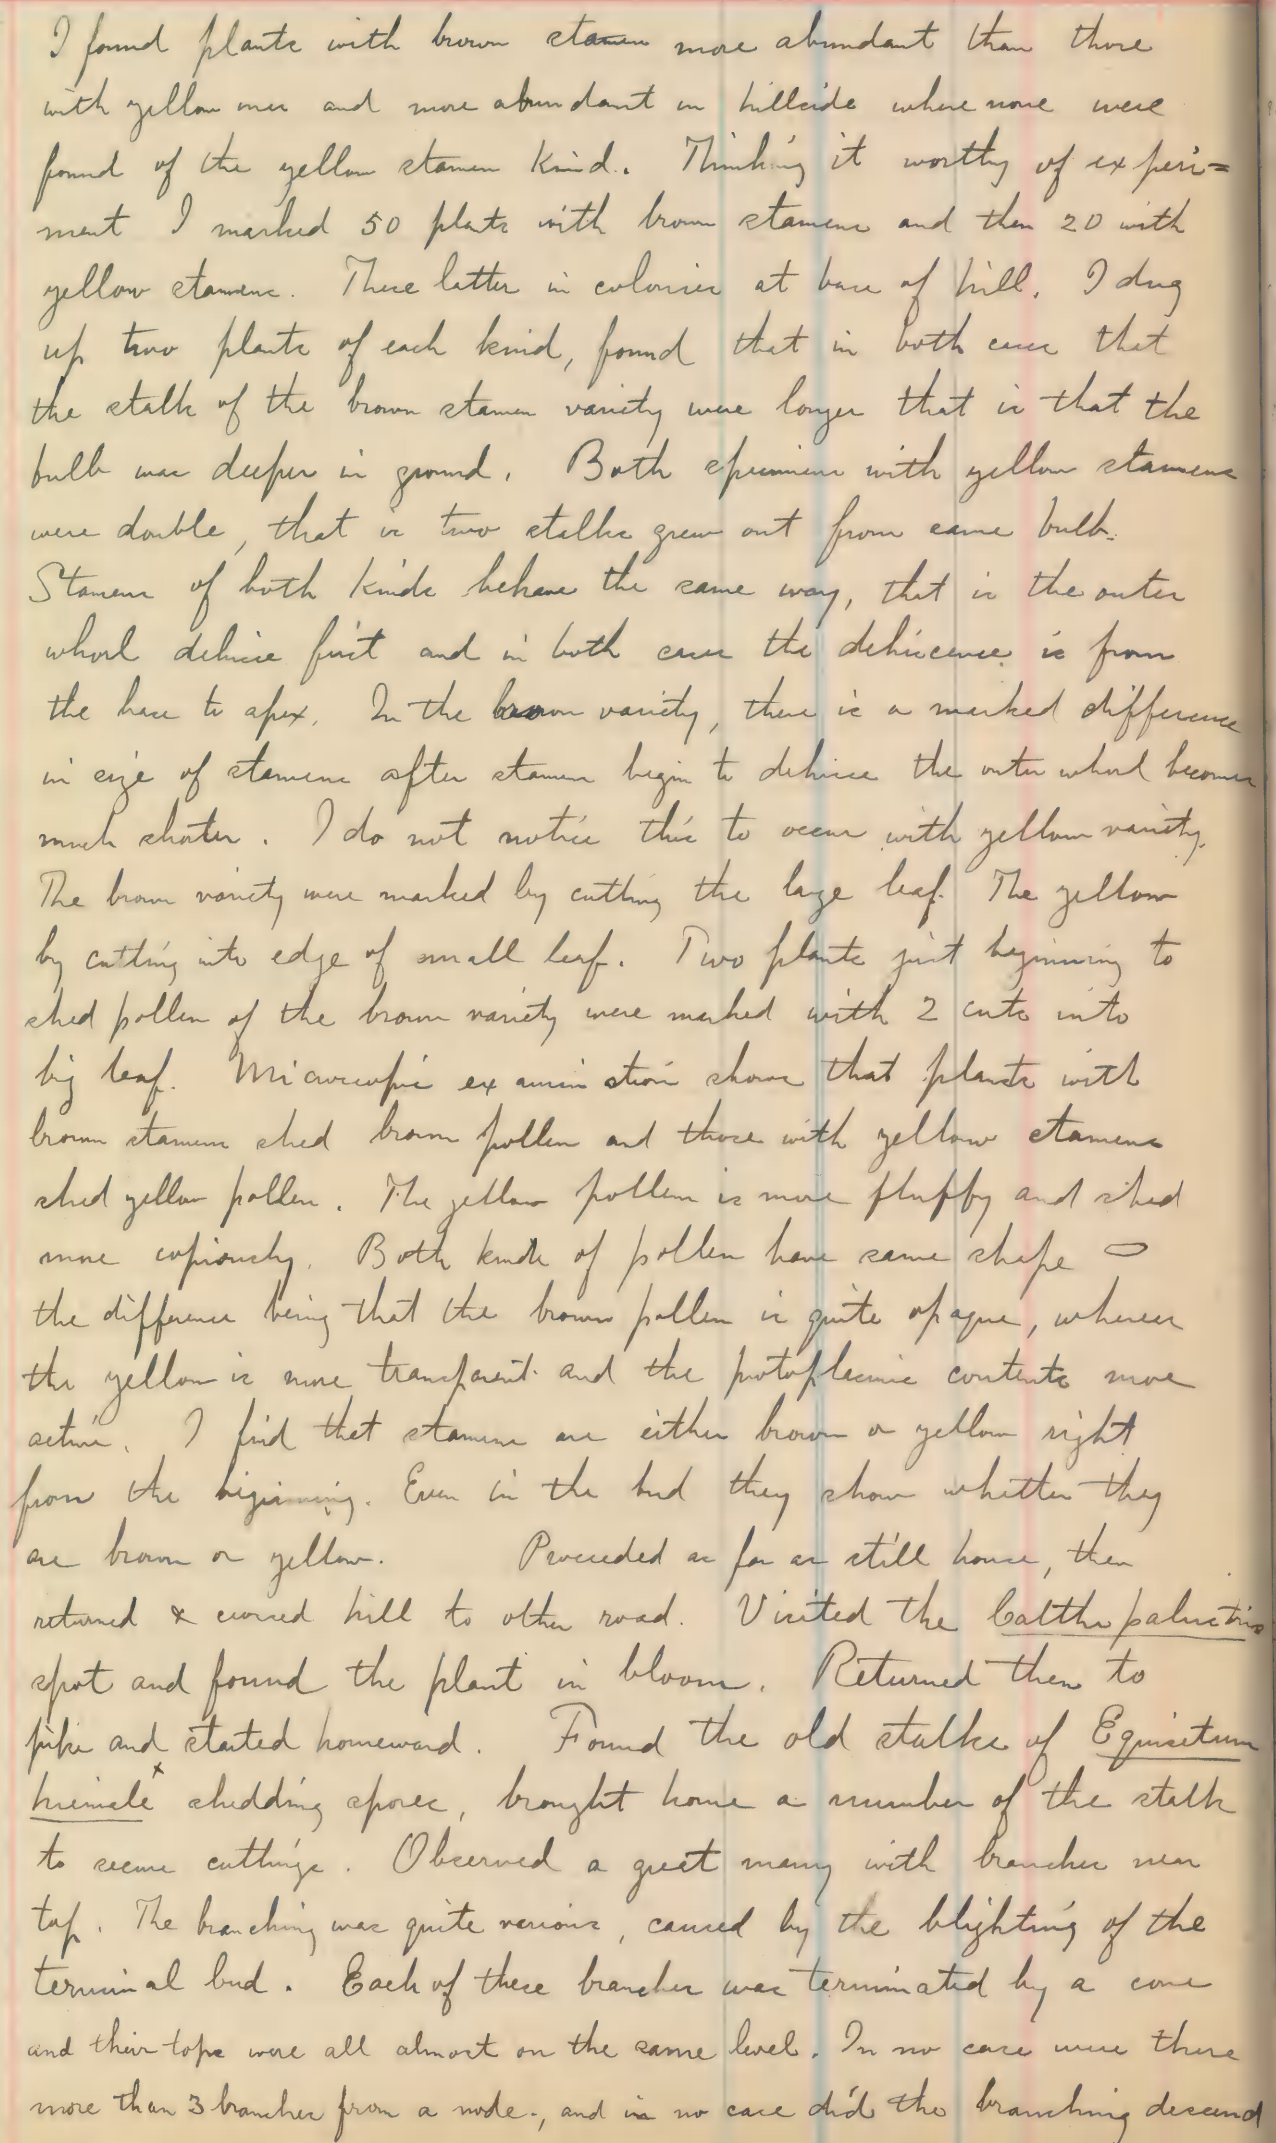 I found plants with brown stamen more abundant than those
with yellow ones and more abundant on hillside where none were
found of the yellow stamen kind. Thinking it worthy of experi=
ment I marked 50 plants with brown stamens and then 20 with
yellow stamens. These latter in colonies at base of hill. I dug
up two plants of each kind, found that in both cases that
the stalk of the brown stamen variety were longer that is that the
bulb was deeper in ground. Both specimens with yellow stamens
were double, that is two stalks grew out from same bulb.
Stamens of both kinds behave the same way, that is the outer
whorl dehisce first and in both cases the dehiscence is from
the base to apex. In the brown variety, there is a marked difference
in size of stamens after stamens begin to dehisce the outer whorl becomes
much shorter. I do not notice this to occur with yellow variety.
The brown variety were marked by cutting the large leaf. The yellow
by cutting into edge of small leaf. Two plants just beginning to
shed pollen of the brown variety were marked with 2 cuts into
big leaf. Microscopic examination shows that plants with
brown stamens shed brown pollen and those with yellow stamens
shed yellow pollen. The yellow pollen is more fluffy and shed
more copiously. Both kinds of pollen have same shape
the difference being that the brown pollen is quite opaque, whereas
the yellow is more transparent and the protoplasmic contents more
active. I find that stamens are either brown or yellow right
from the beginning. Even in the bud they show whether they
are brown or yellow. Proceeded as far as still house, then
returned & crossed hill to other road. Visited the Caltha palustris
spot and found the plant in bloom. Returned then to
pike and started homeward. Found the old stalks of Equisetum
hiemale x shedding spores, brought home a number of the stalk
to secure cuttings. Observed a great many with branches near
top. The branching was quite various, caused by the blighting of the
terminal bud. Each of these branches was terminated by a cone
and their tops were all almost on the same level. In no case were there
more than 3 branches from a node, and in no case did the branching descend